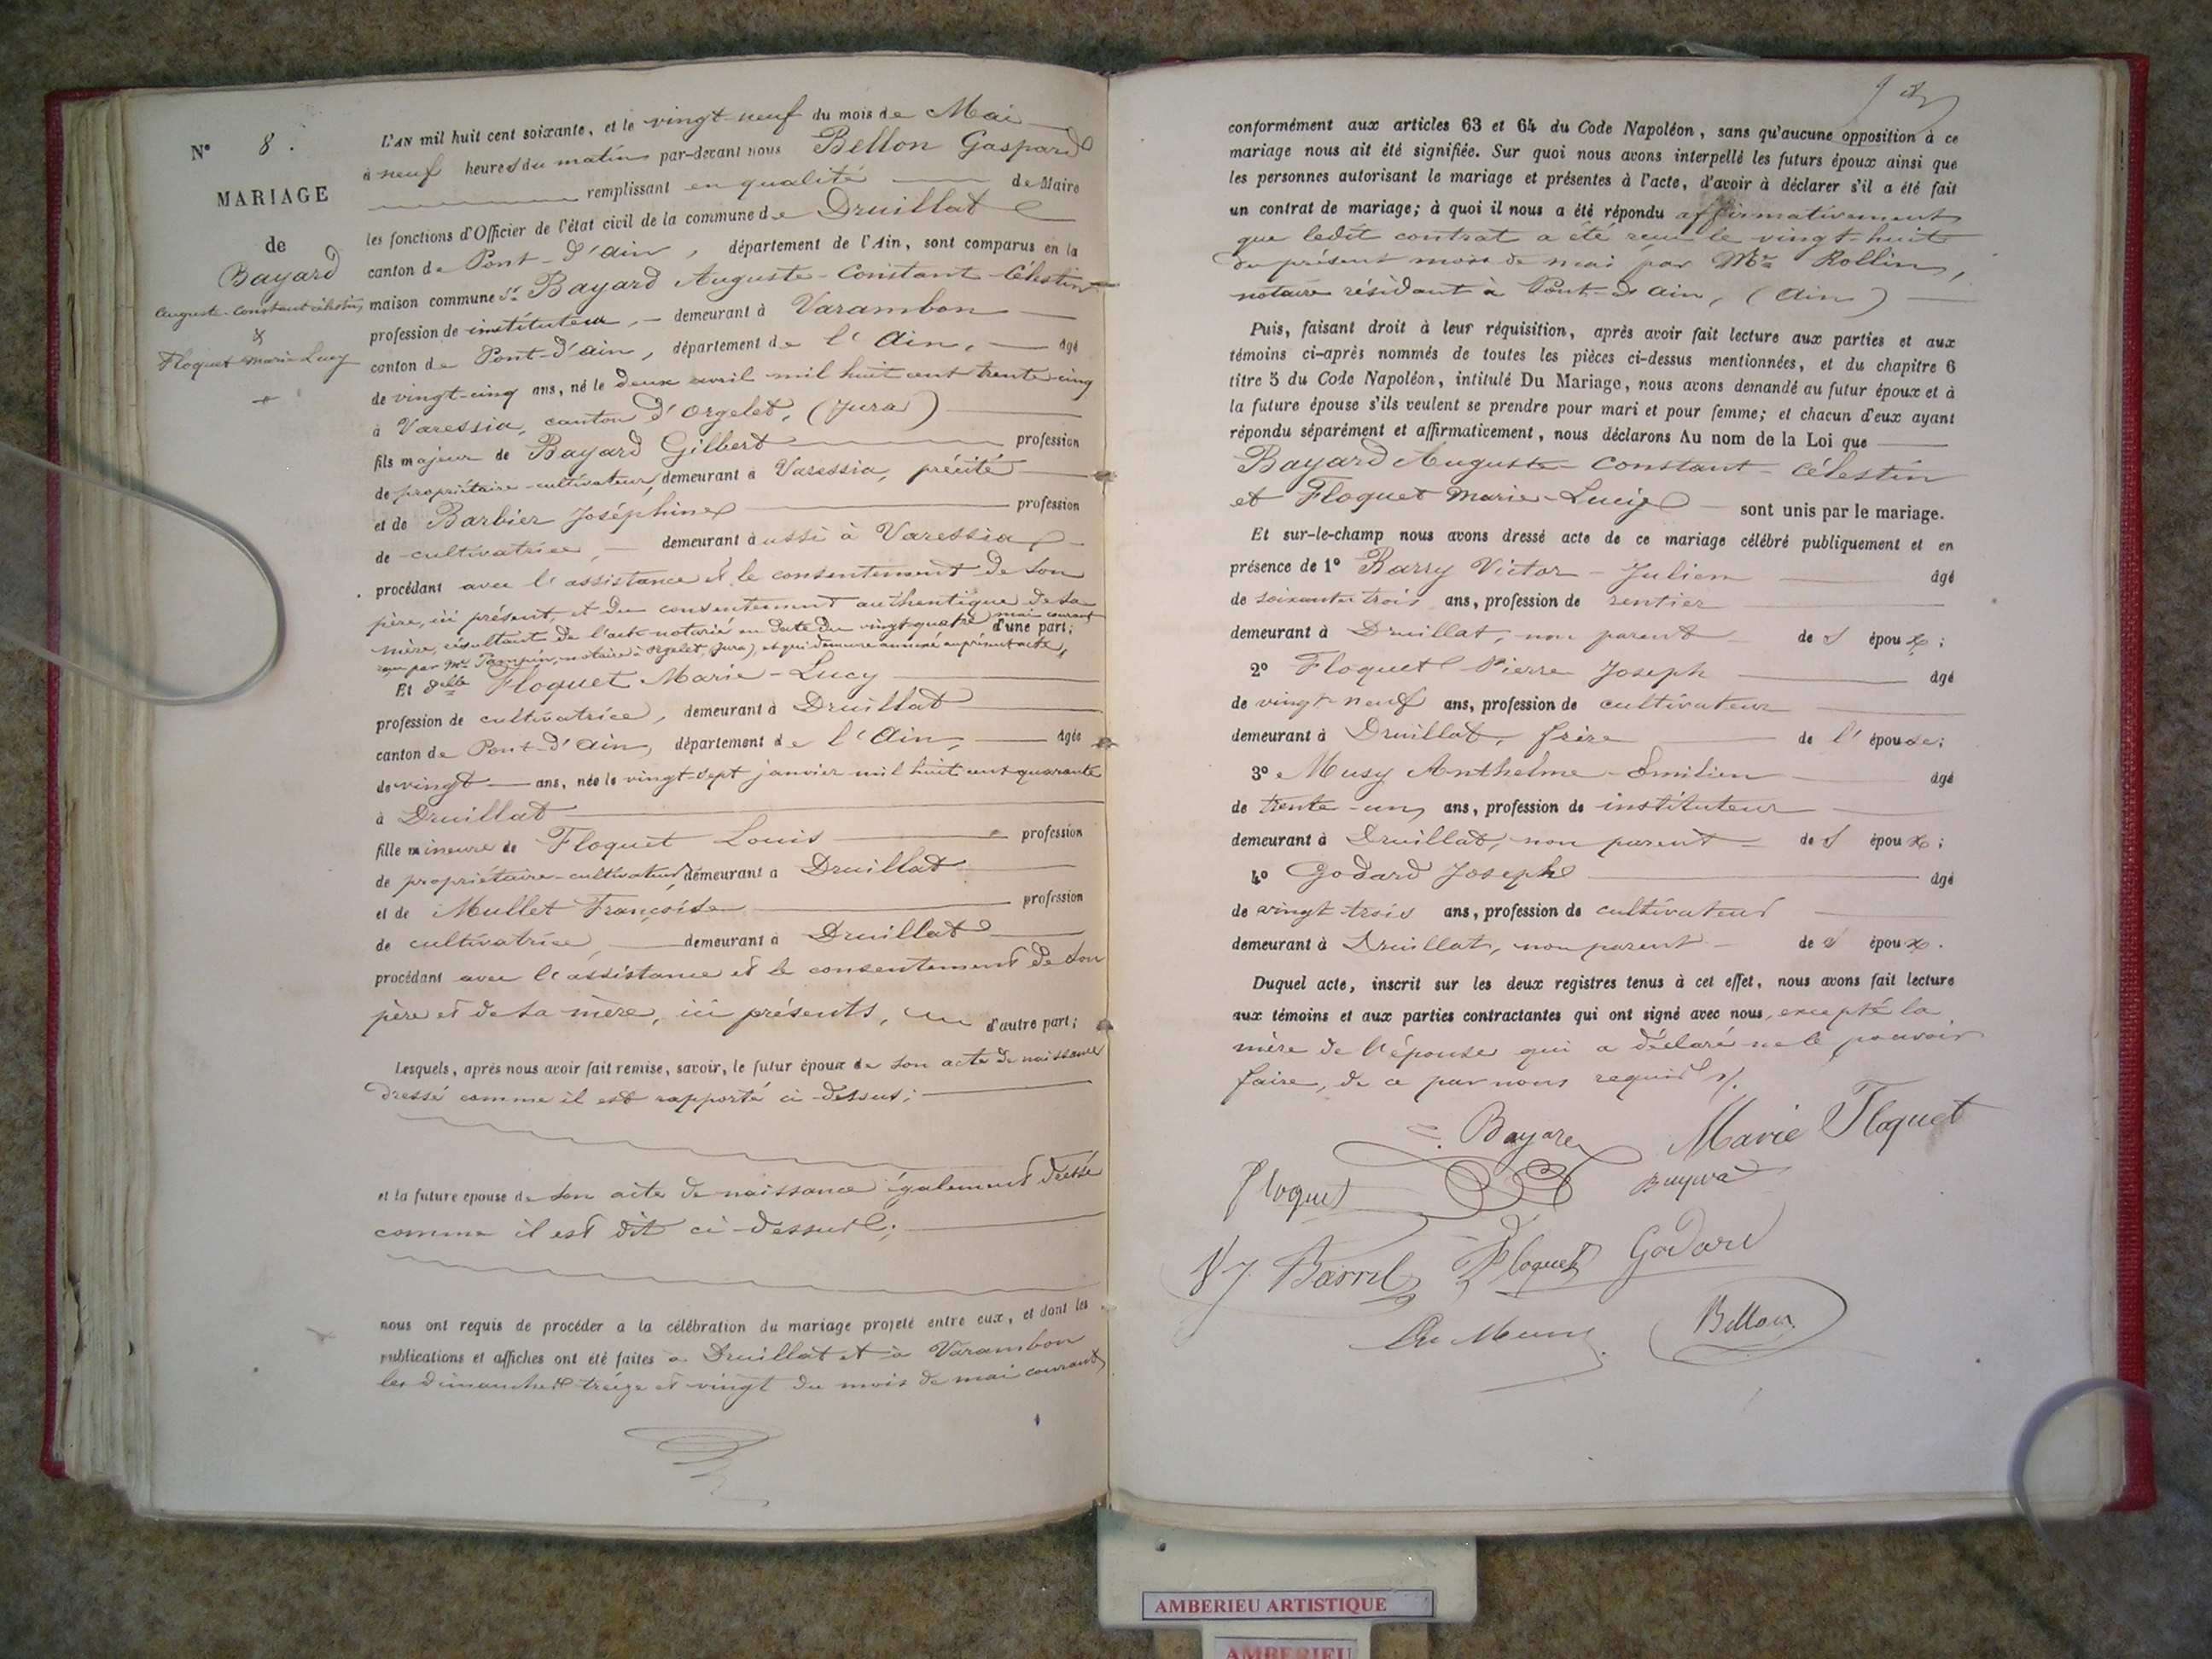 N° 8.
MARIAGE
de
Bayard
Auguste-Constant-Célestin
&
Floquet Marie-Lucy
L'AN mil huit cent soixante, et le vingt-neuf du mois de Mai
à neuf heures du matin par-devant nous Bellon Gaspard
remplissant en qualité de Maire
les fonctions d'Officier de l'état civil de la commune de Druillat
canton de Pont-d'Ain, département de l'Ain, sont comparus en la
maison commune Sr Bayard Auguste-Constant-Célestin
profession de instituteur, demeurant à Varambon
canton de Pont-d'Ain, département de l'Ain, âgé
de vingt-cinq ans, né le deux avril mil huit cent trente-cinq
à Varessia, canton d'Orgelet, (Jura)
fils majeur de Bayard Gilbert profession
de propriétaire-cultivateur, demeurant à Varessia, précité
et de Barbier Joséphine profession
de cultivatrice, demeurant aussi à Varessia
procédant avec l'assistance et le consentement de son
père, ici présent, et du consentement authentique de sa
mère, résultant de l'acte notarié en date du vingt-quatre mai courant d'une part;
reçu par Me notaire à Orgelet, (Jura), et qui demeure annexé au présent acte,
Et Delle Floquet Marie-Lucy
profession de cultivatrice, demeurant à Druillat
canton de Pont-d'Ain, département de l'Ain, âgée
de vingt ans, née le vingt-sept janvier mil huit cent quarante
à Druillat
fille mineure de Floquet Louis profession
de propriétaire-cultivateur, demeurant à Druillat
et de Mullet Françoise profession
de cultivatrice, demeurant à Druillat
procédant avec l'assistance et le consentement de son
père et de sa mère, ici présents, d'autre part;
Lesquels, après nous avoir fait remise, savoir, le futur époux de son acte de naissance
dressé comme il est rapporté ci-dessus;
et la future épouse de son acte de naissance également dressé
comme il est dit ci-dessus;
nous ont requis de procéder à la célébration du mariage projeté entre eux, et dont les
publications et affiches ont été faites à Druillat et à Varambon
les dimanches treize et vingt du mois de mai courant
conformément aux articles 63 et 64 du Code Napoléon, sans qu'aucune opposition à ce
mariage nous ait été signifiée. Sur quoi nous avons interpellé les futurs époux ainsi que
les personnes autorisant le mariage et présentes à l'acte, d'avoir à déclarer s'il a été fait
un contrat de mariage; à quoi il nous a été répondu affirmativement
que ledit contrat a été reçu le vingt-huit
du présent mois de mai par Me Rollin,
notaire résidant à Pont-d'Ain, (Ain)
Puis, faisant droit à leur réquisition, après avoir fait lecture aux parties et aux
témoins ci-après nommés de toutes les pièces ci-dessus mentionnées, et du chapitre 6
titre 5 du Code Napoléon, intitulé Du Mariage, nous avons demandé au futur époux et à
la future épouse s'ils veulent se prendre pour mari et pour femme; et chacun d'eux ayant
répondu séparément et affirmativement, nous déclarons Au nom de la Loi que
Bayard Auguste-Constant-Célestin
et Floquet Marie-Lucy sont unis par le mariage.
Et sur-le-champ nous avons dressé acte de ce mariage célébré publiquement et en
présence de 1° Victor-Julien âgé
de soixante-trois ans, profession de rentier
demeurant à Druillat, non parent des époux;
2° Floquet Pierre Joseph âgé
de vingt-neuf ans, profession de cultivateur
demeurant à Druillat, frère de l'épouse;
3° Musy Anthelme-Emilien âgé
de trente-un ans, profession de instituteur
demeurant à Druillat, non parent des époux;
4° Godard Joseph âgé
de vingt-trois ans, profession de cultivateur
demeurant à Druillat, non parent des époux.
Duquel acte, inscrit sur les deux registres tenus à cet effet, nous avons fait lecture
aux témoins et aux parties contractantes qui ont signé avec nous, excepté la
mère de l'épouse qui a déclaré ne le pouvoir
faire, de ce par nous requis./.
Bayard Marie Floquet
Floquet Bayard
Floquet Godard
Bellon
AMBERIEU ARTISTIQUE
AMBERIEU